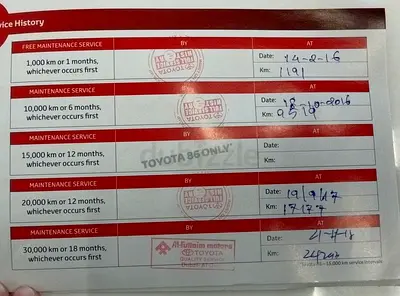 vice History
FREE MAINTENANCE SERVICE BY AT
1,000 km or 1 months,
whichever occurs first
TOYOTA
Date: 14-2-16
Km: 1191
MAINTENANCE SERVICE BY AT
10,000 km or 6 months,
whichever occurs first
TOYOTA
Date: 18-10-2016
Km: 9519
MAINTENANCE SERVICE BY AT
15,000 km or 12 months,
whichever occurs first
TOYOTA 86 ONLY
dubizzle
Date:
Km:
MAINTENANCE SERVICE BY AT
20,000 km or 12 months,
whichever occurs first
TOYOTA
Date: 19/9/17
Km: 17177
MAINTENANCE SERVICE BY AT
30,000 km or 18 months,
whichever occurs first
Al-Futtaim motors
TOYOTA
QUALITY SERVICE
Date:
Km: